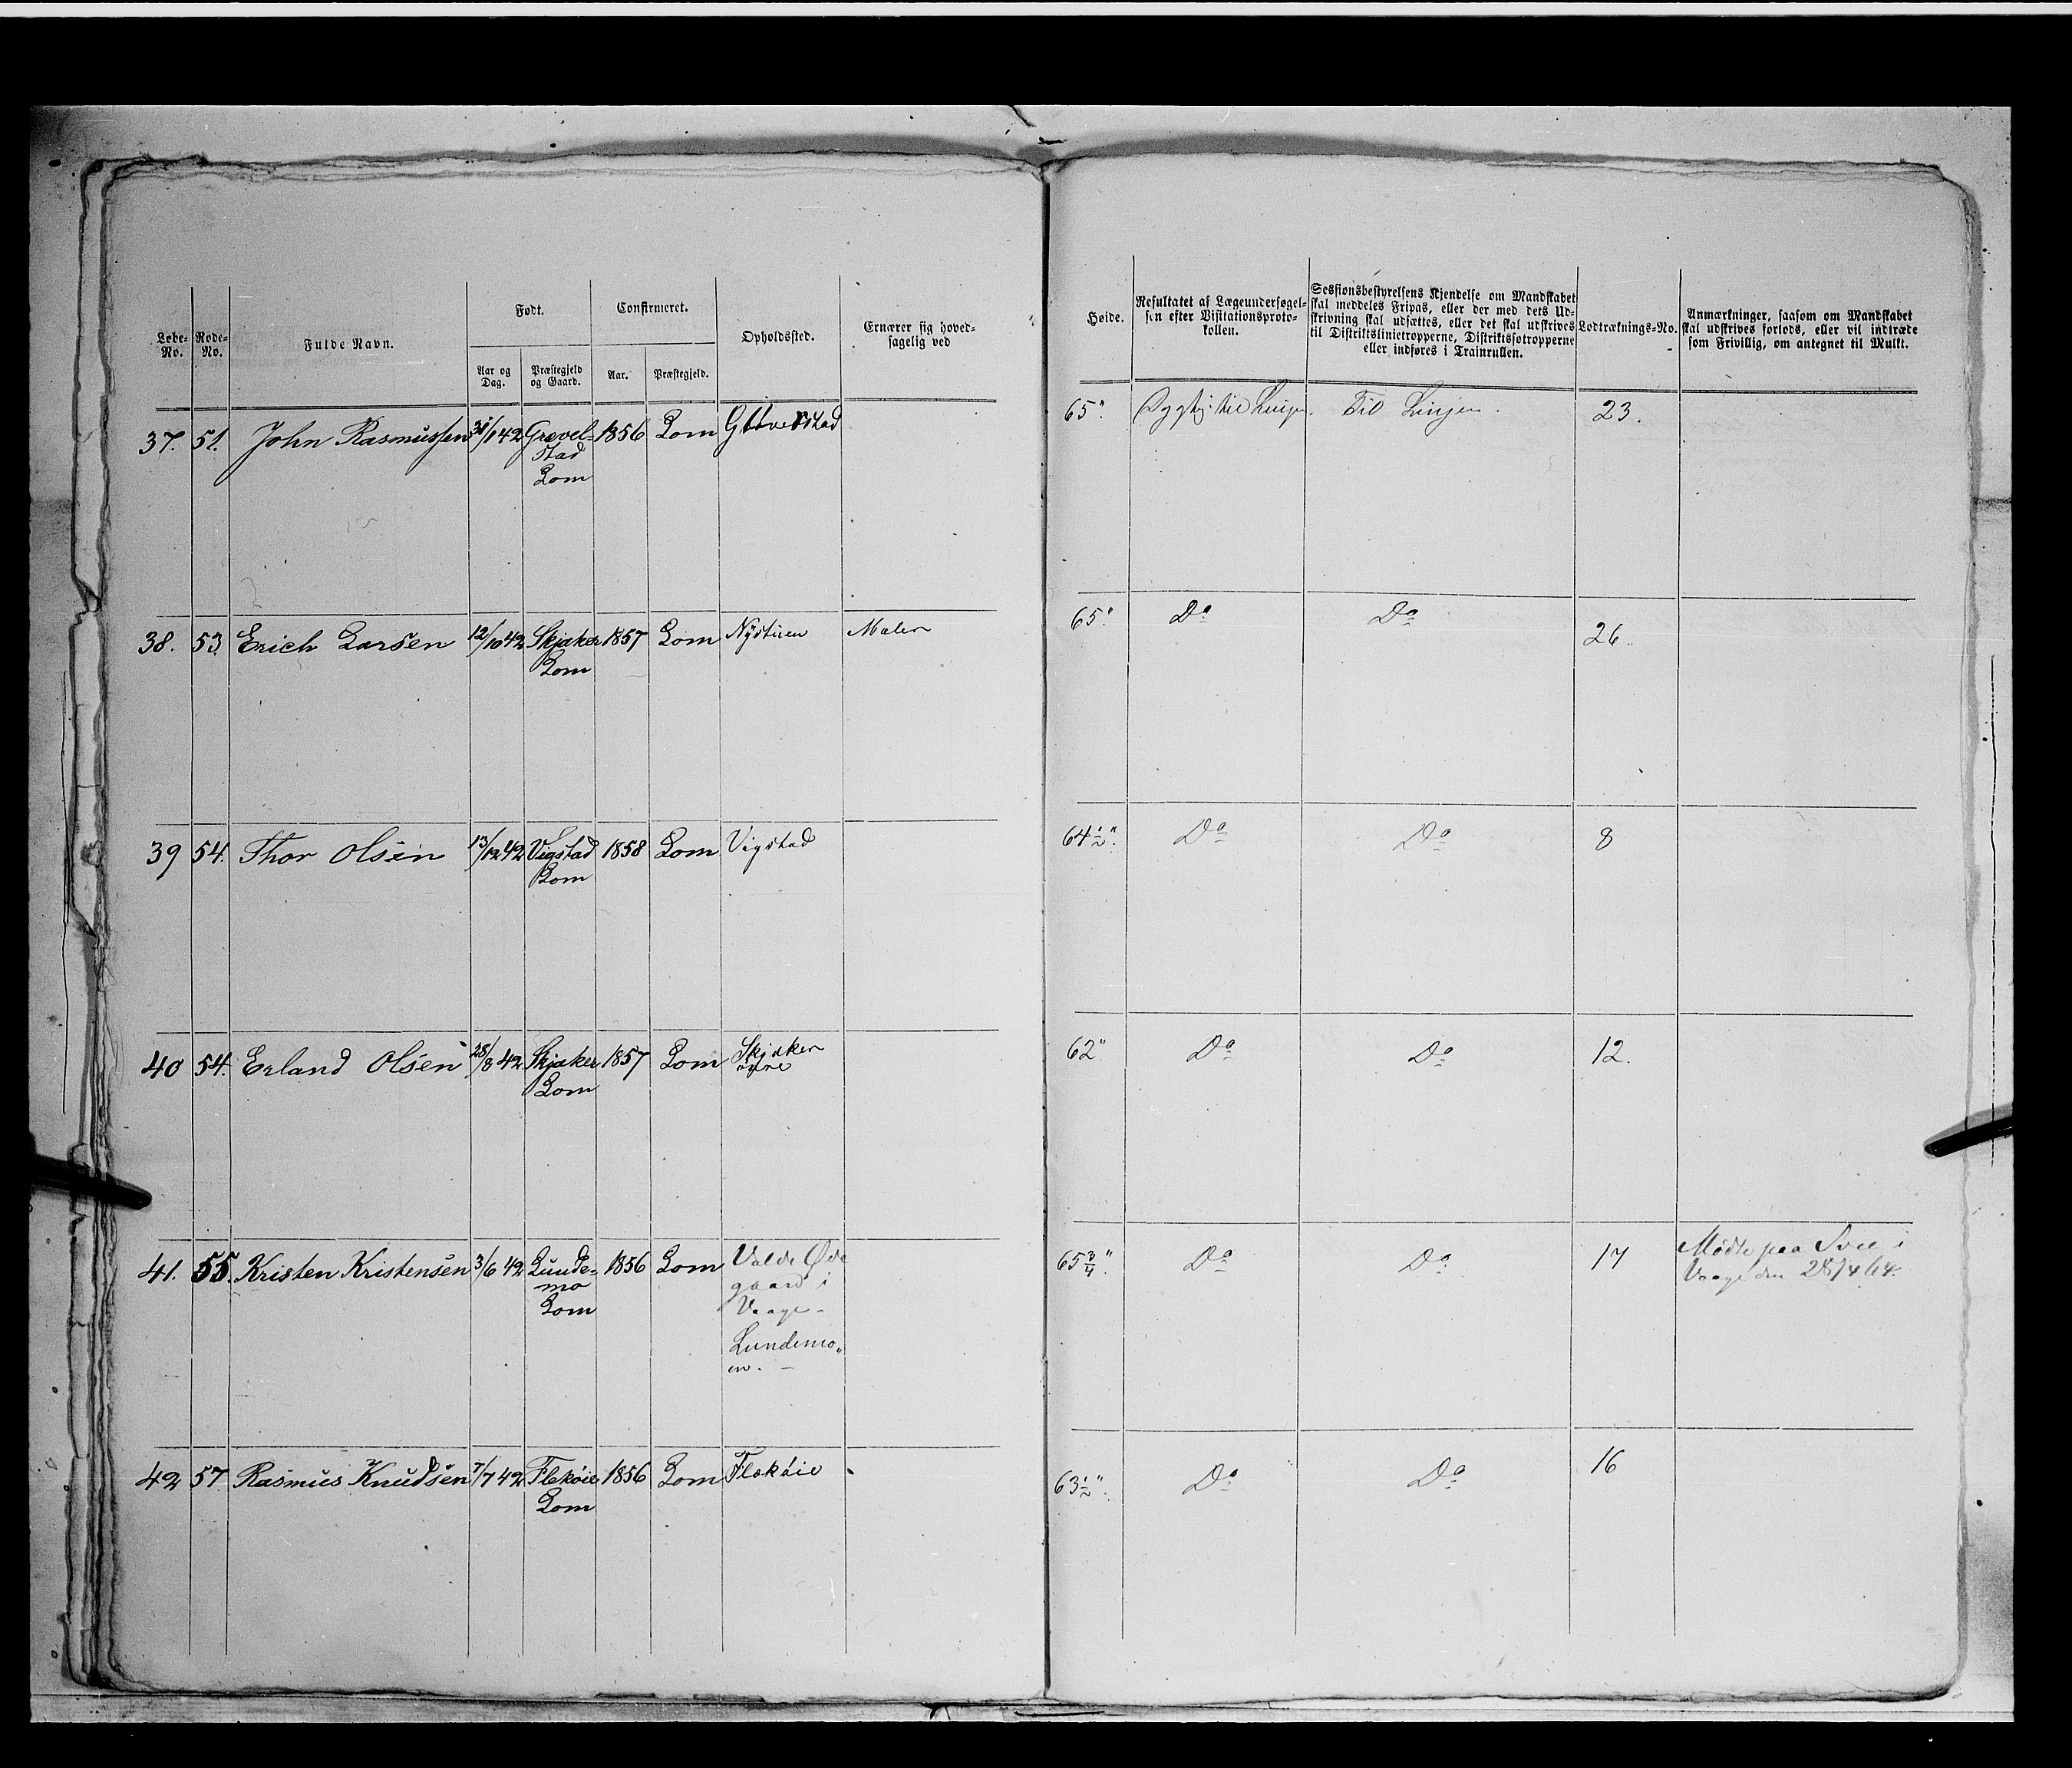 Løbe-No.
Rode-No.
Fulde Navn.
Født.
Aar og Dag.
Præstegjeld og Gaard.
Confirmeret.
Aar.
Præstegjeld.
Opholdssted.
Ernærer sig hoved-
sagelig ved
Høide.
Resultatet af Lægeundersøgel-
sen efter Visitationsproto-
kollen.
Sessionsbestyrelsens Kjendelse om Mandskabet
skal meddeles Fripas, eller der med dets Ud-
skrivning skal udsættes, eller det skal udskrives
til Distriktslinietropperne, Distriktsfotropperne
eller indføres i Trainrullen.
Lodtræknings-No.
Anmærkninger, saasom om Mandskabet
skal udskrives forlods, eller vil indtræde
som Frivillig, om antegnet til Mulkt.
37. 51. John Rasmussen 42 Grevel- 1856 Lom
stad
Lom
65". Dygtig til Linjen. Til Linjen. 23.
38. 53 Erich Larsen 12/10 42 Skjaker 1857 Lom Nysturen Maler
Lom
65". Do Do 26.
39 54. Thor Olsen 13/12 42 Vigstad 1858 Lom Vigstad
Lom
64½". Do Do 8
40 54. Erland Olsen 28/8 42 Skjaker 1857 Lom Skjaker
Lom øvre
62". Do Do 12.
41. 55. Kristen Kristensen 3/6 42 Lunde- 1856 Lom
mo gaard i
Lom Vaage-
Lundemo„
en. –
65¾". Do Do 17 Mødte paa i
Vaage den 28/4 64.
42 57 Rasmus Knudsen 7/7 42 Flekøie 1856 Lom Flekøie
Lom
63½". Do Do 16